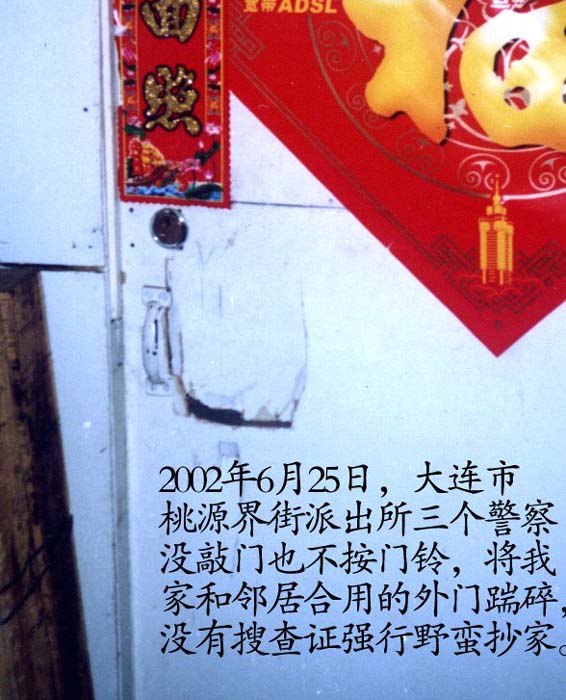 宽带ADSL
面
照
福
2002年6月25日，大连市
桃源界街派出所三个警察
没敲门也不按门铃，将我
家和邻居合用的外门踹碎，
没有搜查证强行野蛮抄家。